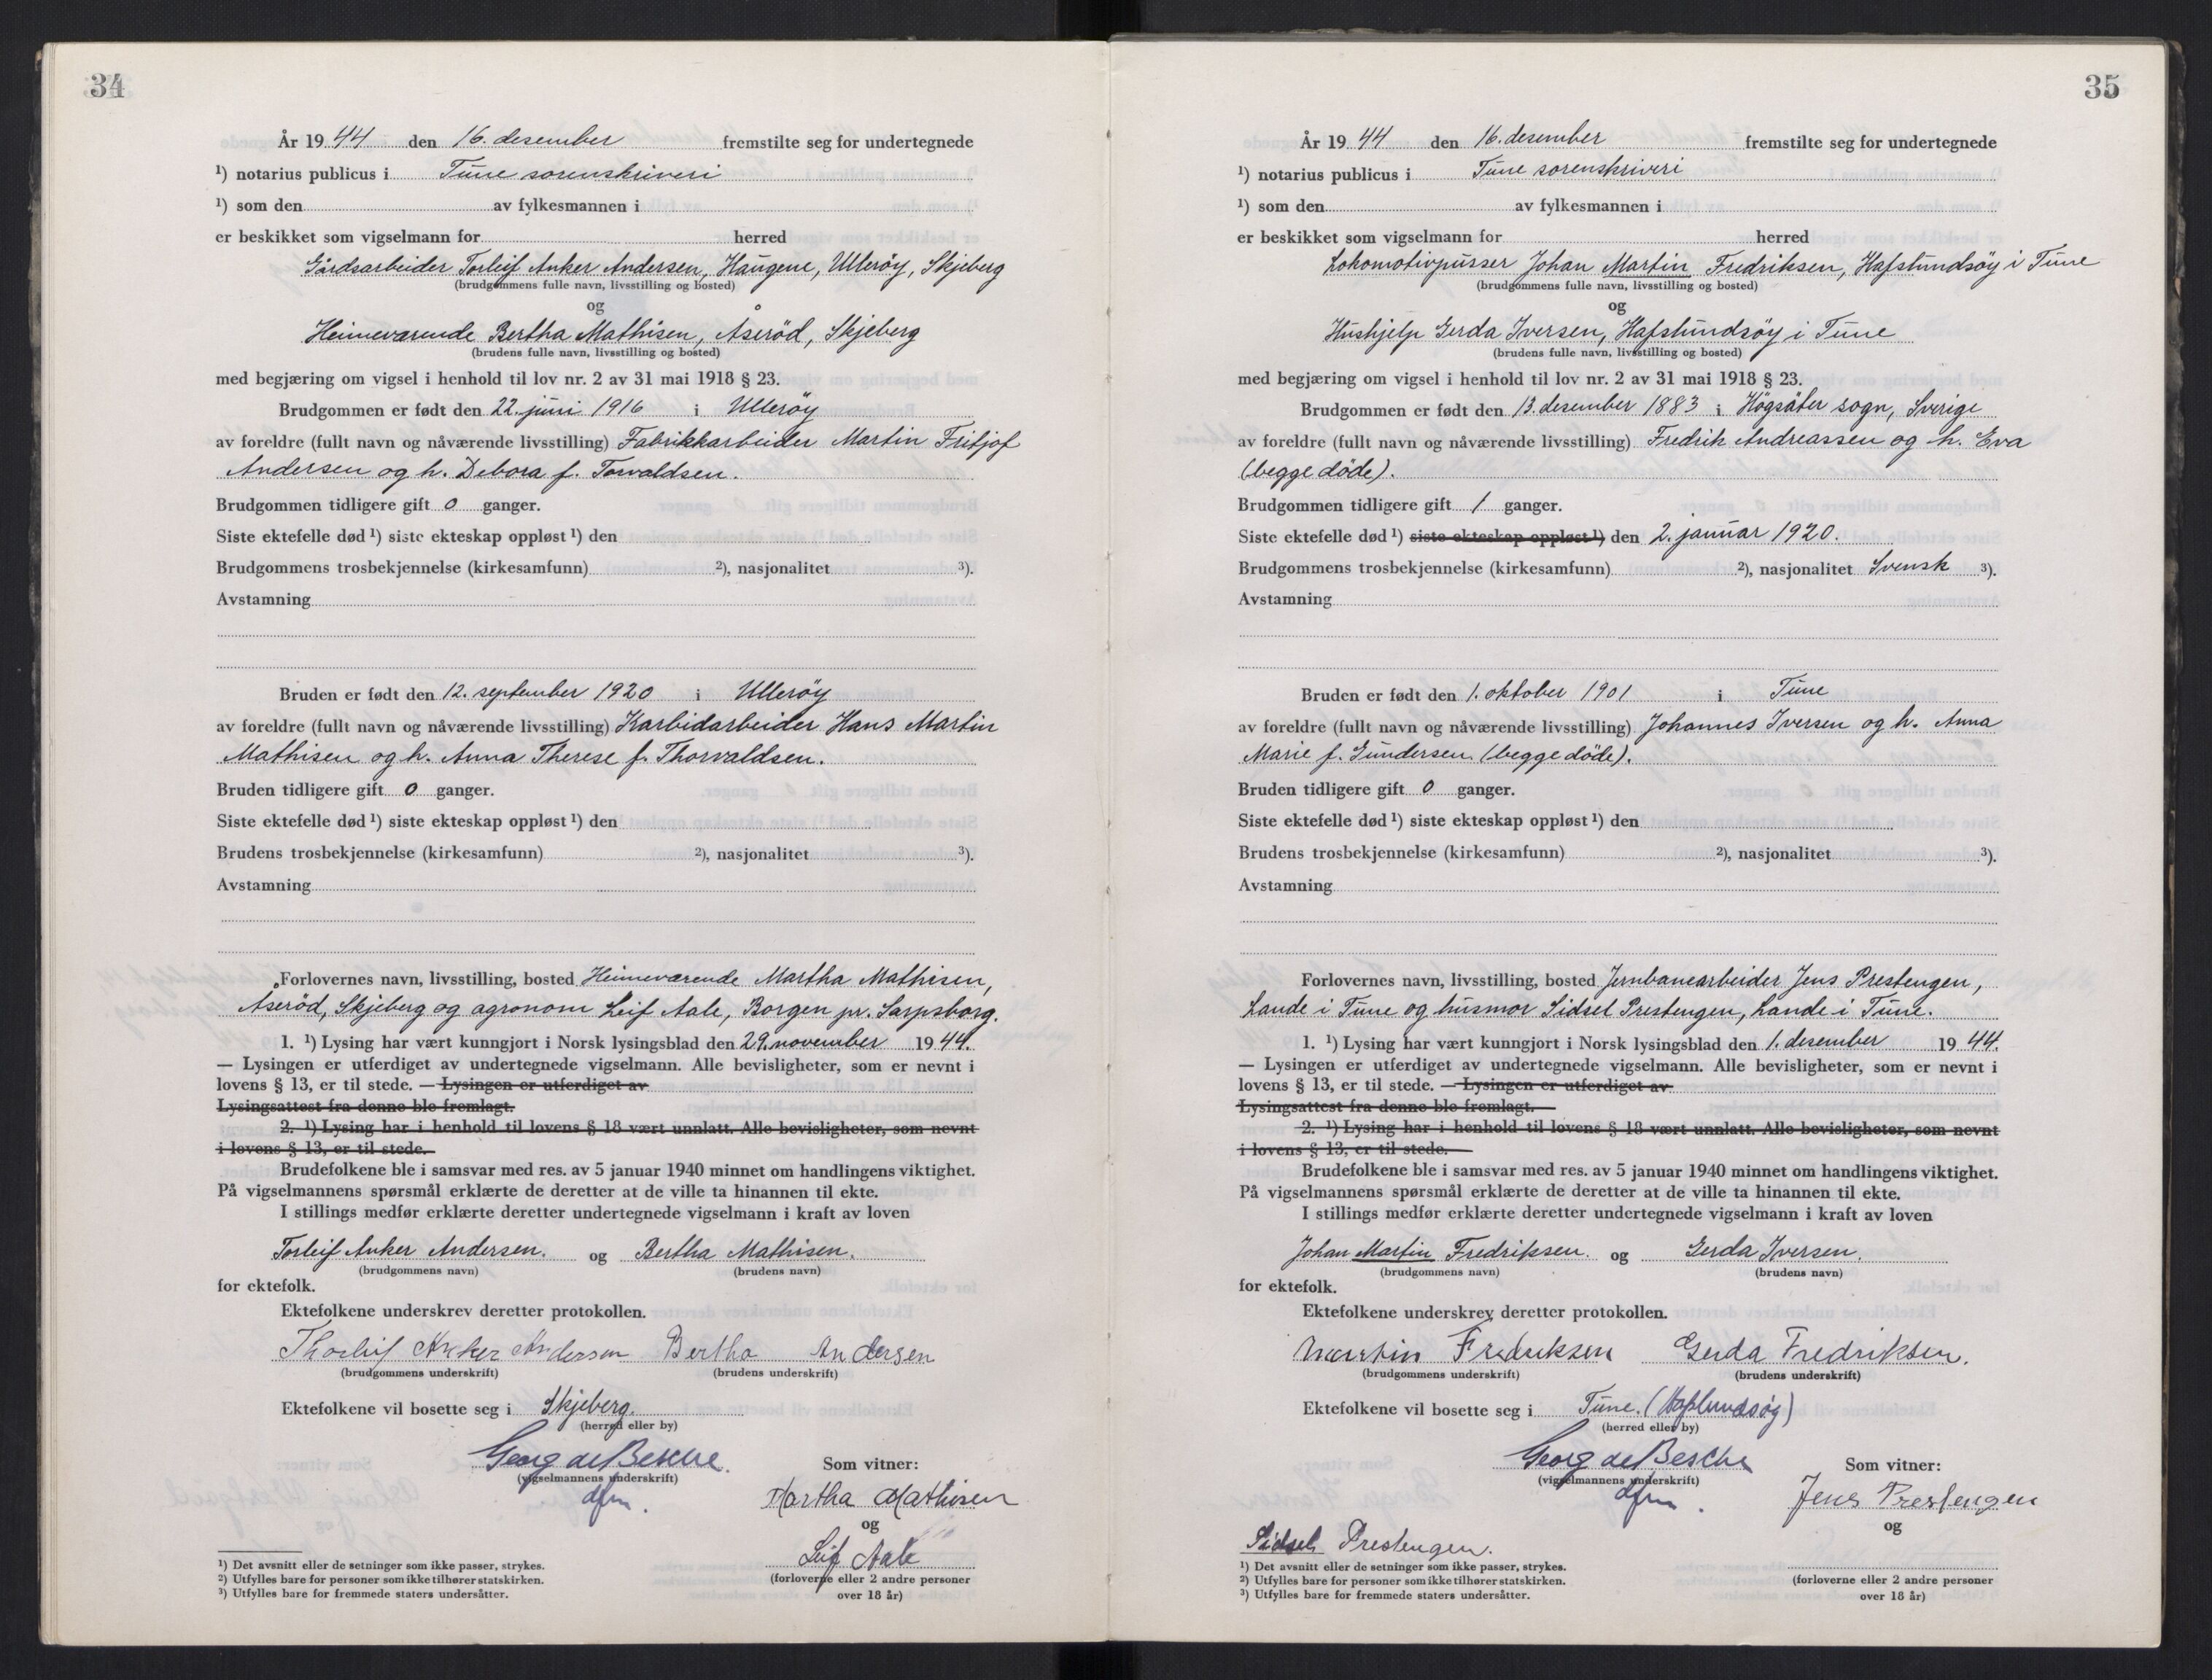 34
År 1944 den 16. desember fremstilte seg for undertegnede
¹) notarius publicus i Tune sorenskriveri
¹) som den av fylkesmannen i
er beskikket som vigselmann for herred
Gårdsarbeider Torleif Anker Andersen, Haugene, Ullerøy, Skjeberg
(brudgommens fulle navn, livsstilling og bosted)
og
Heimeværende Bertha Mathisen, Åseröd, Skjeberg
(brudens fulle navn, livsstilling og bosted)
med begjæring om vigsel i henhold til lov nr. 2 av 31 mai 1918 § 23.
Brudgommen er født den 22. juni 1916 i Ullerøy
av foreldre (fullt navn og nåværende livsstilling) Fabrikkarbeider Martin Fritjof
Andersen og h. Debora f. Torvaldsen.
Brudgommen tidligere gift 0 ganger.
Siste ektefelle død ¹) siste ekteskap oppløst ¹) den
Brudgommens trosbekjennelse (kirkesamfunn) ²), nasjonalitet ³).
Avstamning
Bruden er født den 12. september 1920 i Ullerøy
av foreldre (fullt navn og nåværende livsstilling) Karbidarbeider Hans Martin
Mathisen og h. Anna Therese f. Thorvaldsen.
Bruden tidligere gift 0 ganger.
Siste ektefelle død ¹) siste ekteskap oppløst ¹) den
Brudens trosbekjennelse (kirkesamfunn) ²), nasjonalitet ³).
Avstamning
Forlovernes navn, livsstilling, bosted Heimeværende Martha Mathisen,
Åseröd, Skjeberg og agronom Leif Aale, Borgen pr. Sarpsborg.
1. ¹) Lysing har vært kunngjort i Norsk lysingsblad den 29. november 1944.
— Lysingen er utferdiget av undertegnede vigselmann. Alle bevisligheter, som er nevnt i
lovens § 13, er til stede. — Lysingen er utferdiget av
Lysingsattest fra denne ble fremlagt.
2. ¹) Lysing har i henhold til lovens § 18 vært unnlatt. Alle bevisligheter, som nevnt
i lovens § 13, er til stede.
Brudefolkene ble i samsvar med res. av 5 januar 1940 minnet om handlingens viktighet.
På vigselmannens spørsmål erklærte de deretter at de ville ta hinannen til ekte.
I stillings medfør erklærte deretter undertegnede vigselmann i kraft av loven
Torleif Anker Andersen. og Bertha Mathisen.
(brudgommens navn) (brudens navn)
for ektefolk.
Ektefolkene underskrev deretter protokollen.
Thorleif Anker Andersen Bertha Andersen
(brudgommens underskrift) (brudens underskrift)
Ektefolkene vil bosette seg i Skjeberg.
(herred eller by)
Georg de Besche.
(vigselmannens underskrift)
dfm.
Som vitner:
Martha Mathisen
og
Leif Aale
(forloverne eller 2 andre personer
over 18 år)
¹) Det avsnitt eller de setninger som ikke passer, strykes.
²) Utfylles bare for personer som ikke tilhører statskirken.
³) Utfylles bare for fremmede staters undersåtter.
35
År 1944 den 16. desember fremstilte seg for undertegnede
¹) notarius publicus i Tune sorenskriveri
¹) som den av fylkesmannen i
er beskikket som vigselmann for herred
Lokomotivpusser Johan Martin Fredriksen, Hafslundsöy i Tune
(brudgommens fulle navn, livsstilling og bosted)
og
Hushjelp Gerda Iversen, Hafslundsöy i Tune
(brudens fulle navn, livsstilling og bosted)
med begjæring om vigsel i henhold til lov nr. 2 av 31 mai 1918 § 23.
Brudgommen er født den 13. desember 1883 i Högsäter sogn, Sverige
av foreldre (fullt navn og nåværende livsstilling) Fredrik Andreassen og h. Eva
(begge döde).
Brudgommen tidligere gift 1 ganger.
Siste ektefelle død ¹) siste ekteskap oppløst ¹) den 2. januar 1920.
Brudgommens trosbekjennelse (kirkesamfunn) ²), nasjonalitet Svensk ³).
Avstamning
Bruden er født den 1. oktober 1901 i Tune
av foreldre (fullt navn og nåværende livsstilling) Johannes Iversen og h. Anna
Marie f. Gundersen (begge döde).
Bruden tidligere gift 0 ganger.
Siste ektefelle død ¹) siste ekteskap oppløst ¹) den
Brudens trosbekjennelse (kirkesamfunn) ²), nasjonalitet ³).
Avstamning
Forlovernes navn, livsstilling, bosted Jernbanearbeider Jens Prestengen,
Lande i Tune og husmor Sidsel Prestengen, Lande i Tune.
1. ¹) Lysing har vært kunngjort i Norsk lysingsblad den 1. desember 1944.
— Lysingen er utferdiget av undertegnede vigselmann. Alle bevisligheter, som er nevnt i
lovens § 13, er til stede. — Lysingen er utferdiget av
Lysingsattest fra denne ble fremlagt.
2. ¹) Lysing har i henhold til lovens § 18 vært unnlatt. Alle bevisligheter, som nevnt
i lovens § 13, er til stede.
Brudefolkene ble i samsvar med res. av 5 januar 1940 minnet om handlingens viktighet.
På vigselmannens spørsmål erklærte de deretter at de ville ta hinannen til ekte.
I stillings medfør erklærte deretter undertegnede vigselmann i kraft av loven
Johan Martin Fredriksen. og Gerda Iversen.
(brudgommens navn) (brudens navn)
for ektefolk.
Ektefolkene underskrev deretter protokollen.
Martin Fredriksen Gerda Fredriksen.
(brudgommens underskrift) (brudens underskrift)
Ektefolkene vil bosette seg i Tune. (Hafslundsøy)
(herred eller by)
Georg de Besche
(vigselmannens underskrift)
dfm.
Som vitner:
Jens Prestengen
og
Sidsel Prestengen.
(forloverne eller 2 andre personer
over 18 år)
¹) Det avsnitt eller de setninger som ikke passer, strykes.
²) Utfylles bare for personer som ikke tilhører statskirken.
³) Utfylles bare for fremmede staters undersåtter.